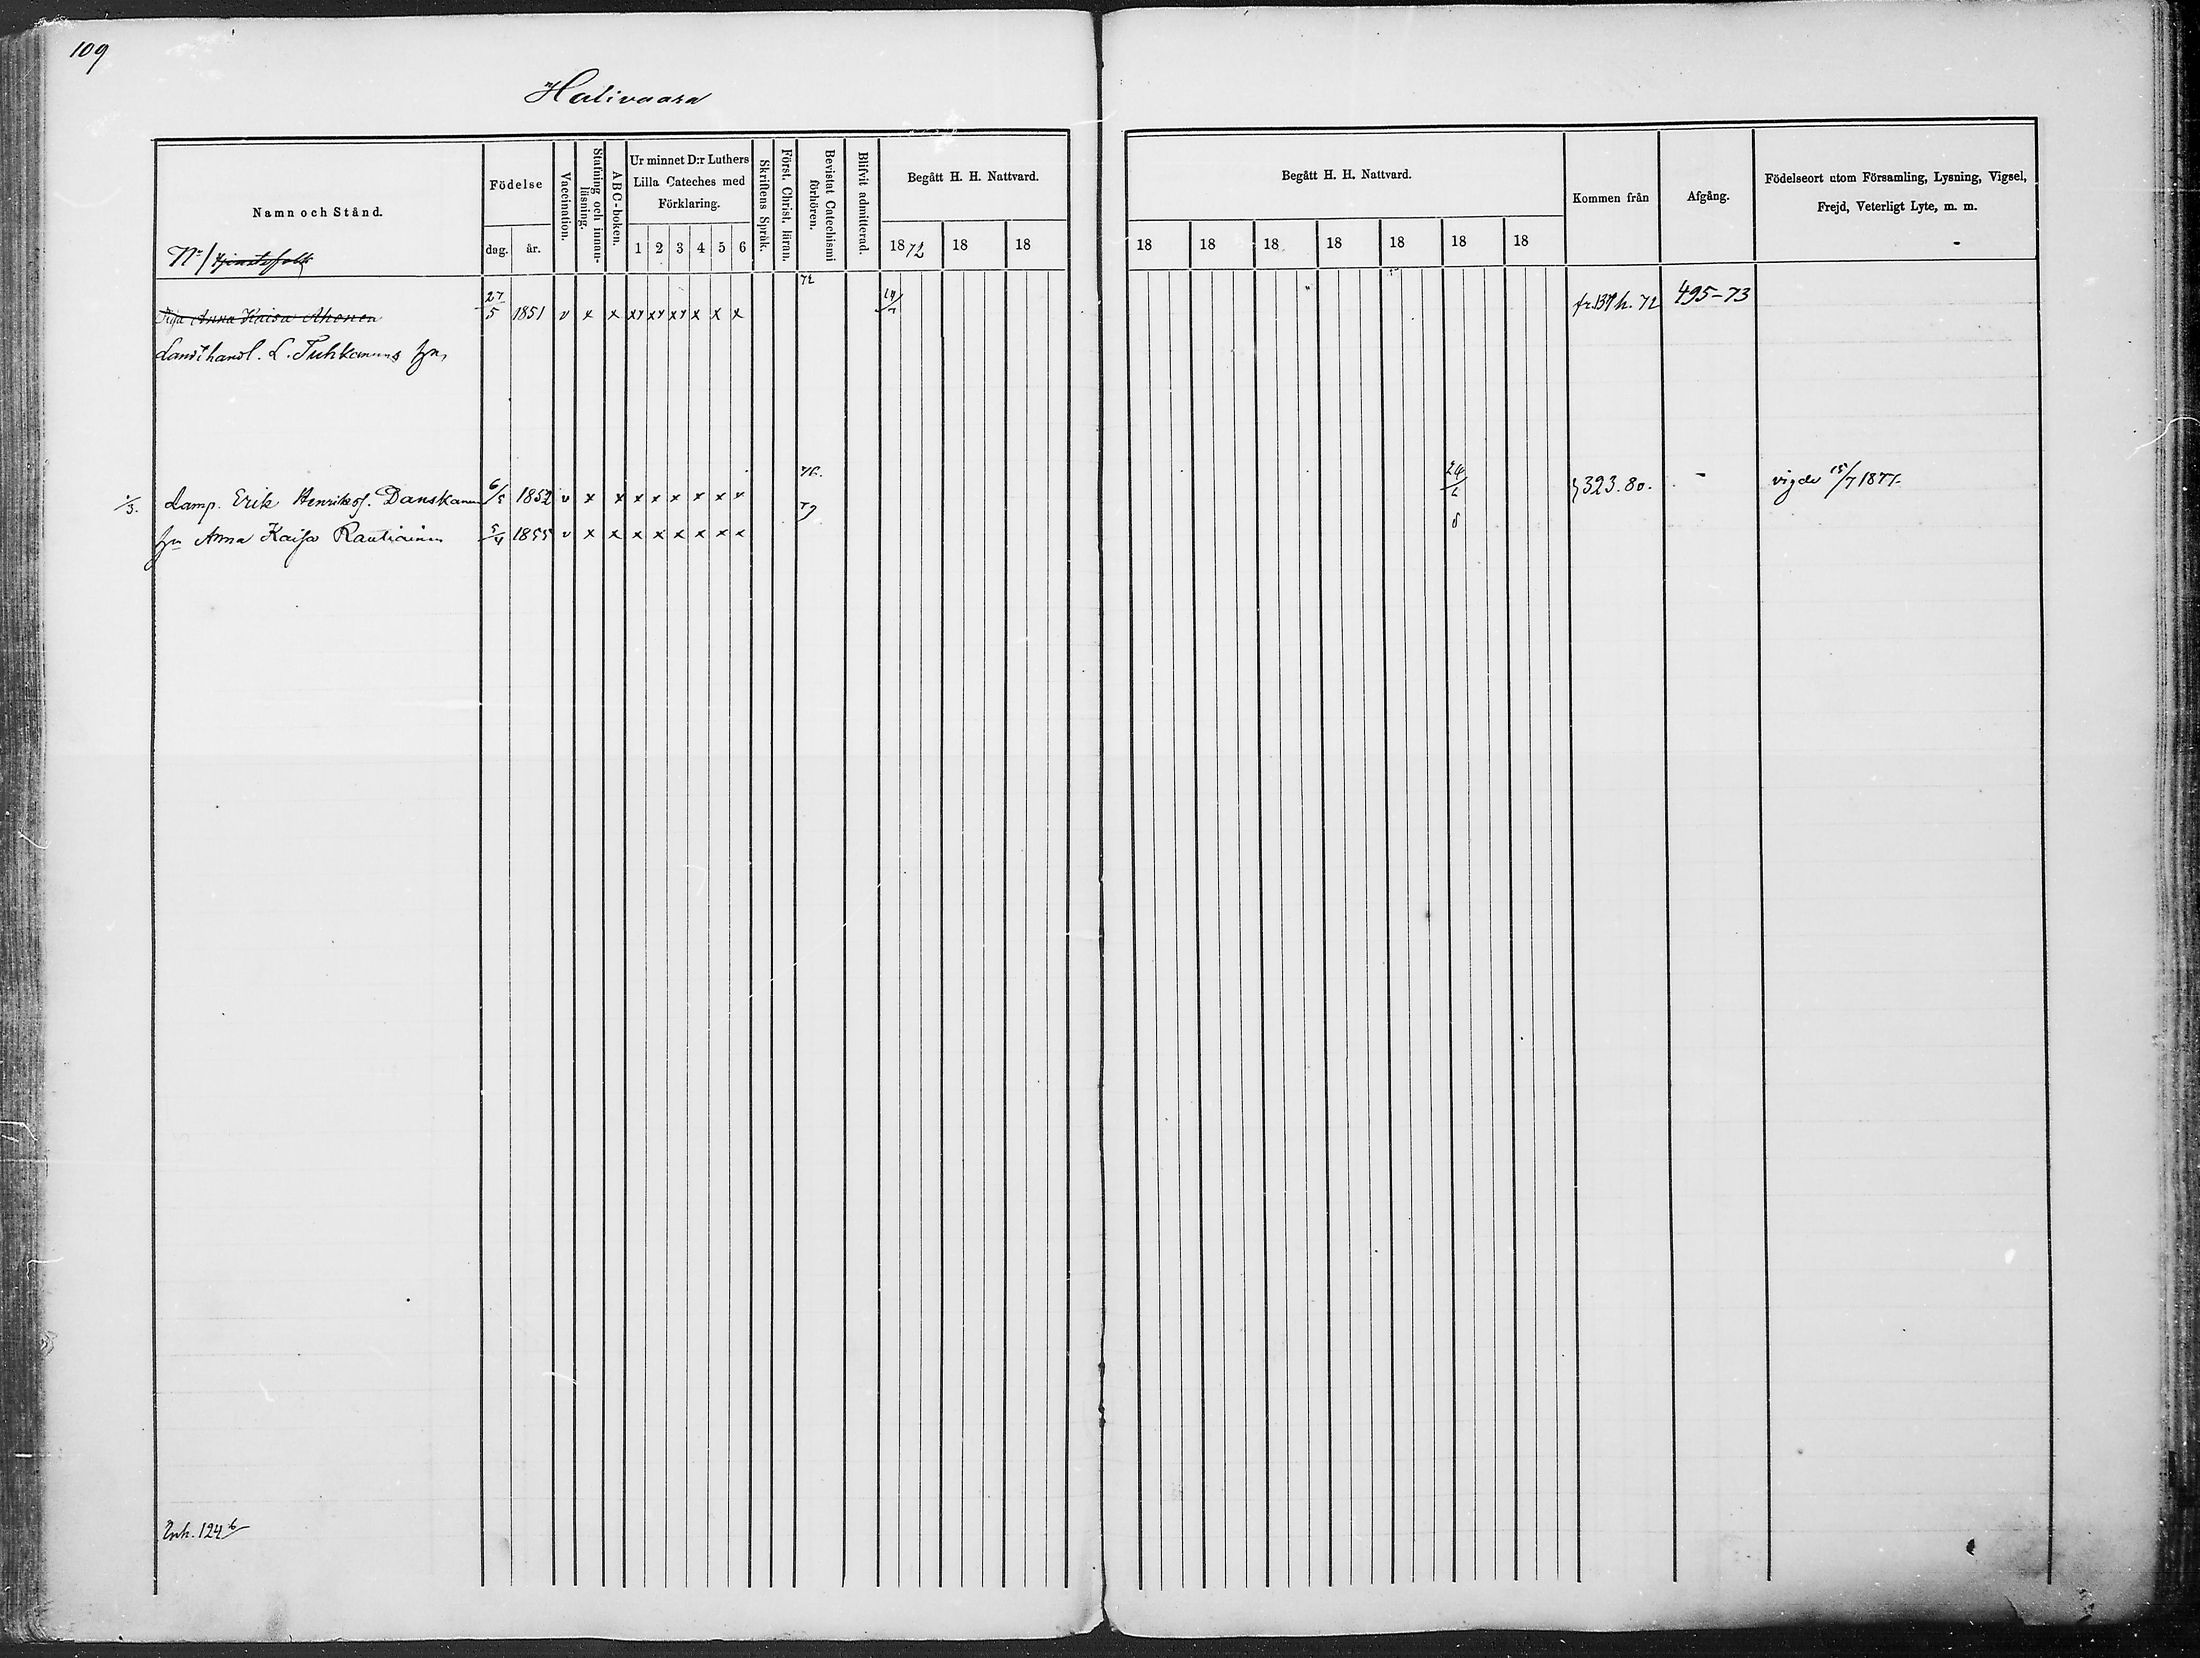 109
Halivaara
Namn och Stånd.
Födelse
dag.
år.
Vaccination.
Stafning och innan-läsning.
ABC-boken.
Ur minnet D:r Luthers Lilla Cateches med Förklaring.
1 2 3 4 5 6
Skriftens Språk.
Först. Christ. läran.
Bevistat Catechismi förhören.
Blifvit admitterad.
Begått H. H. Nattvard.
1872 18 18
Begått H. H. Nattvard.
18 18 18 18 18 18 18
Kommen från
Afgång.
Födelseort utom Församling, Lysning, Vigsel, Frejd, Veterligt Lyte, m. m.
No 1 Tjenstefolk
Piga Anna Kaisa Ahonen 27/5 1851 v x x xx xx xx x x x 72 fr. 137 h. 72 495-73
Landthandl. L. Tuhkanens
1/3. Lamp. Erik Henrikss. Danskanen 6/5 1852 v x x x x x x x x 76. 79 323.80. - vigde 15/7 1877.
Anna Kaisa Rautiainen 5/4 1855 v x x x x x x x x
Inh. 124